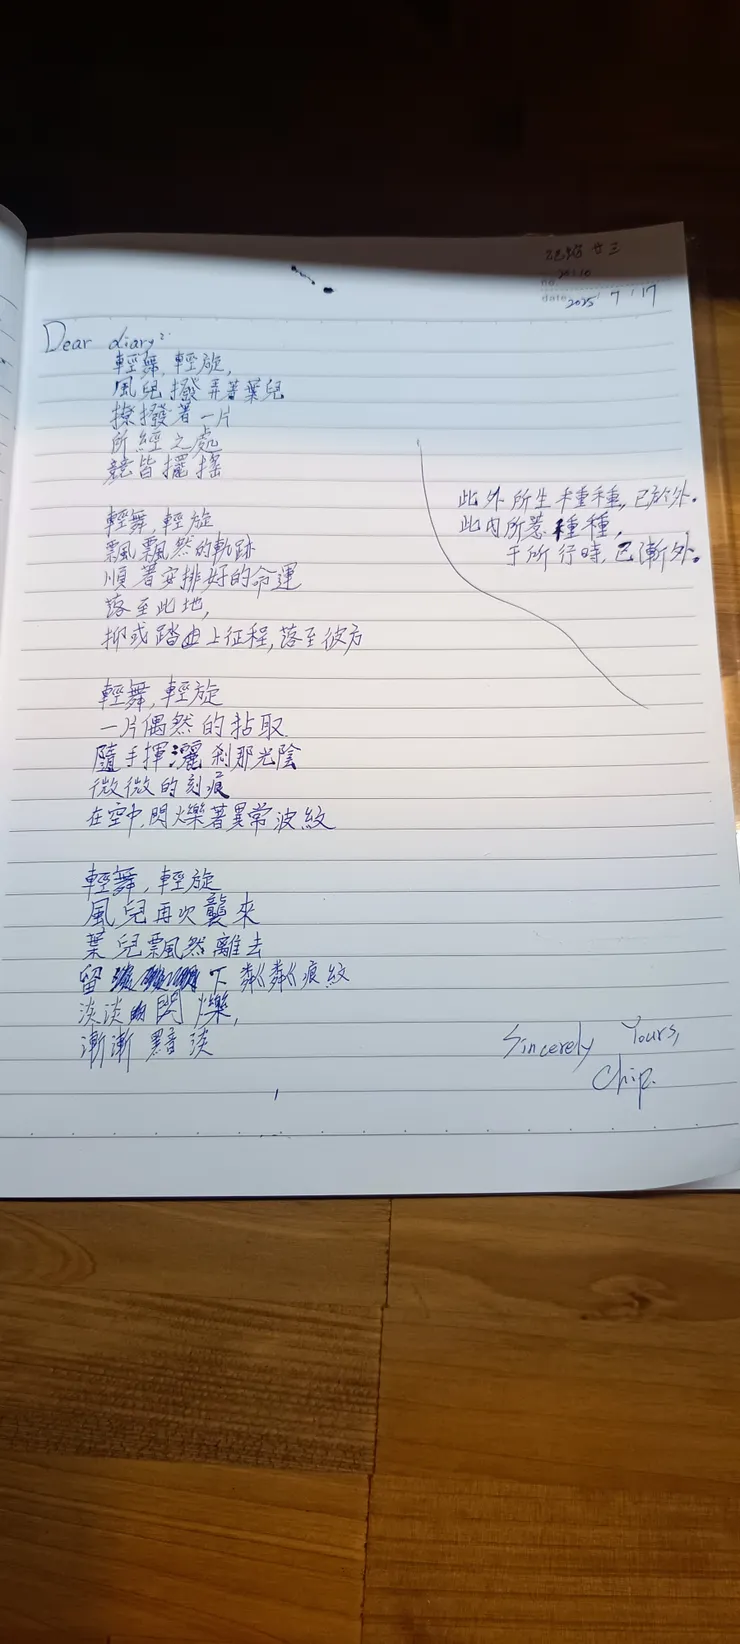 廿三
no. 20:10
date 2025 / 7 / 17
Dear diary:
輕舞,輕旋,
風兒撥弄著葉兒
撩撥著一片
所經之處
競皆擺搖
此外所生種種,已於外。
此內所惹種種,
于所行時,已漸外。
輕舞,輕旋
飄飄然的軌跡
順著安排好的命運
落至此地,
抑或踏上征程,落至彼方
輕舞,輕旋
一片偶然的拈取
隨手揮灑剎那光陰
微微的刻痕
在空中,閃爍著異常波紋
輕舞,輕旋
風兒再次襲來
葉兒飄然離去
留下粼粼痕紋
淡淡的閃爍,
漸漸黯淡
Sincerely Yours,
Chip.